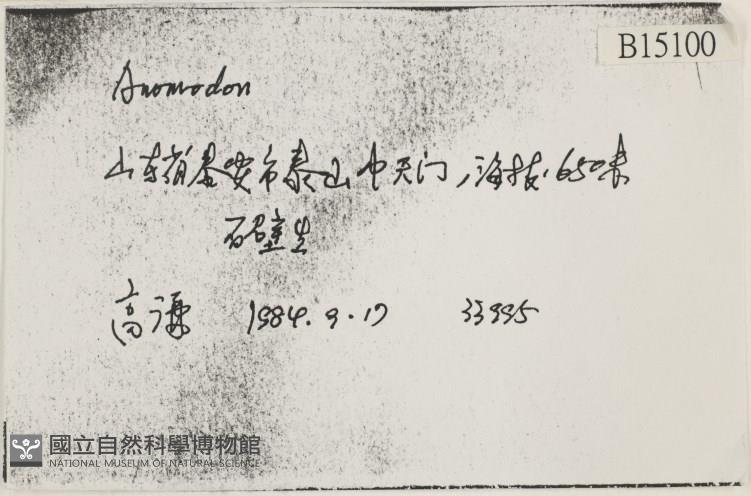 B15100
Anomodon
山东省泰安市泰山中天门,海拔650米
石壁生
高谦 1984.9.17 33995
國立自然科學博物館
NATIONAL MUSEUM OF NATURAL SCIENCE